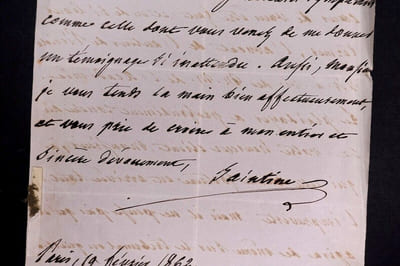 comme celle dont vous venez de me donner
un témoignage si inattendu. Aussi, monsieur
je vous tends la main bien affectueusement,
et vous prie de croire à mon entier et
sincère dévouement,
Saintine
Paris, 19 février 1862